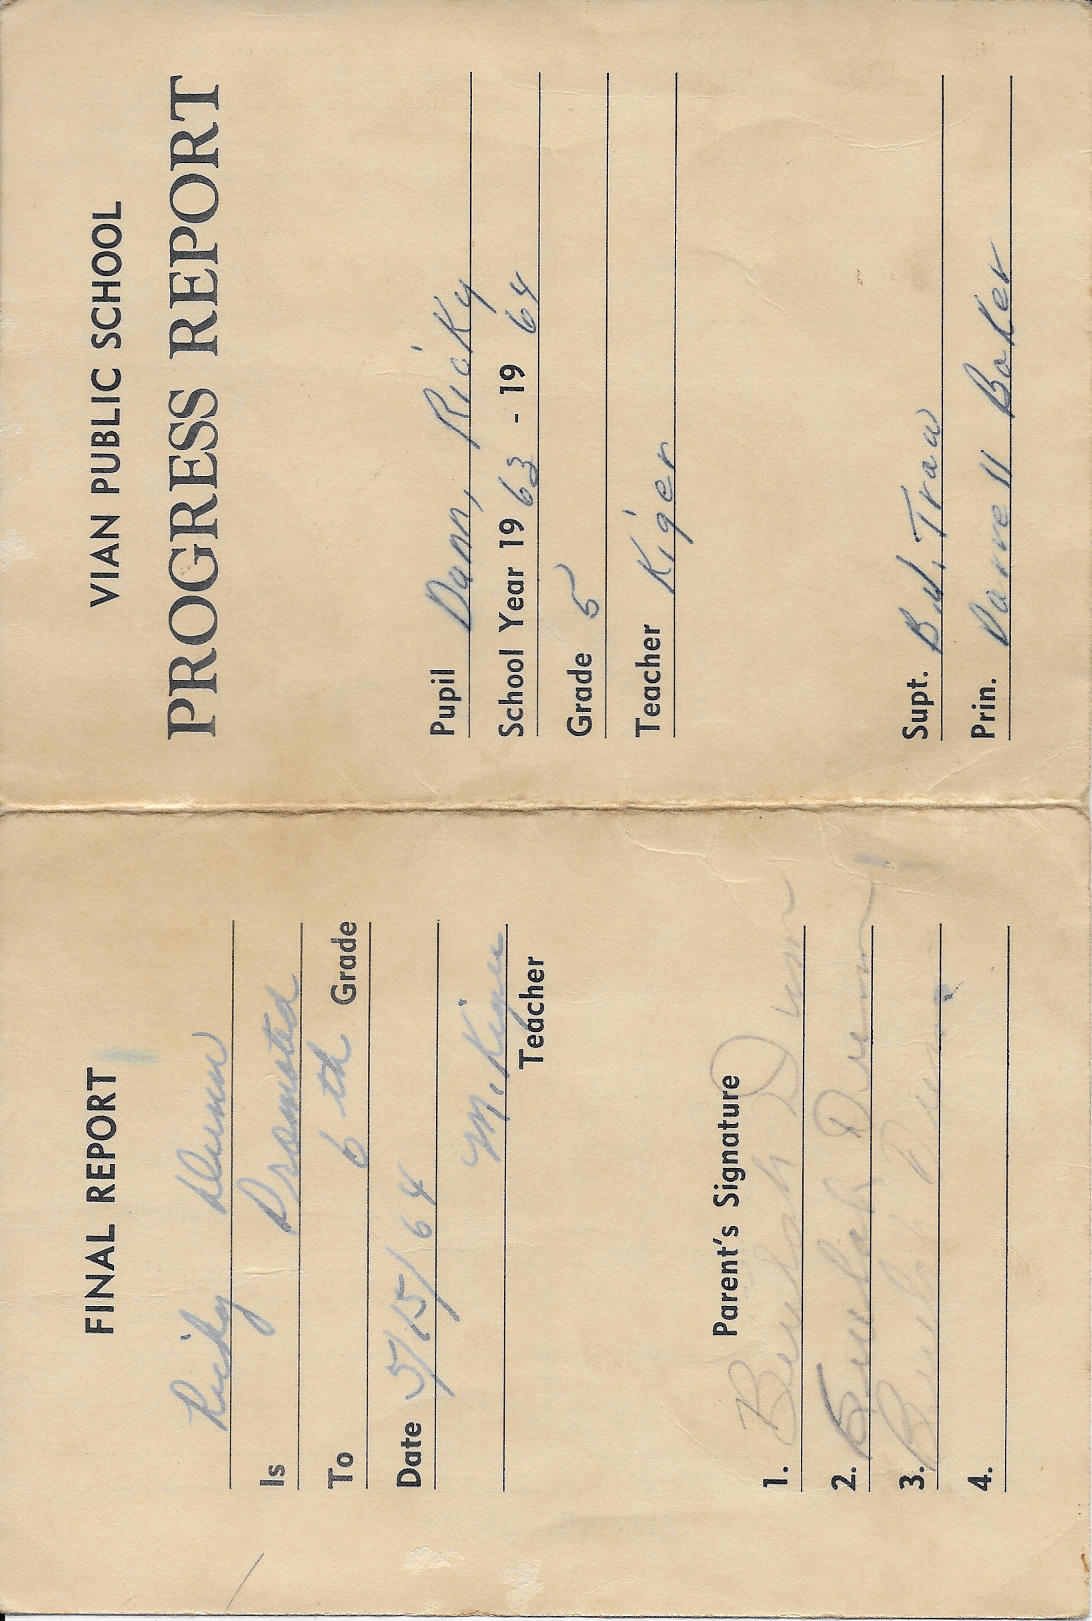 FINAL REPORT
Ricky Dunn
Is Promoted
To 6th Grade
Date 5/15/64
M. Kiger
Teacher
Parent's Signature
1. Beulah Dunn
2. Beulah Dunn
3. Beulah Dunn
4.
VIAN PUBLIC SCHOOL
PROGRESS REPORT
Pupil Dunn, Ricky
School Year 19 63 - 19 64
Grade 5
Teacher Kiger
Supt. Traw
Prin. Darrell Baker